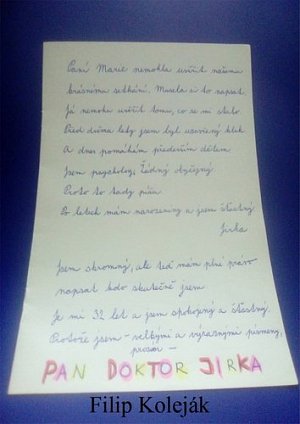 Paní Marie nemohla uvěřit našemu
krásnému setkání. Musela si to napsat
Já nemohu uvěřit tomu, co se mi stalo.
Před dvěma lety jsem byl uzavřený kluk
A dnes pomáhám především dětem
Jsem psycholog, Žádný obyčejný
Proto to tady píšu
Po letech mám narozeniny a jsem šťastný
Jirka
Jsem skromný, ale teď mám plné právo
napsat kdo skutečně jsem
Je mi 32 let a jsem spokojený a šťastný.
Protože jsem - velkými a výraznými písmeny,
prosím -
PAN DOKTOR JIRKA
Filip Koleják